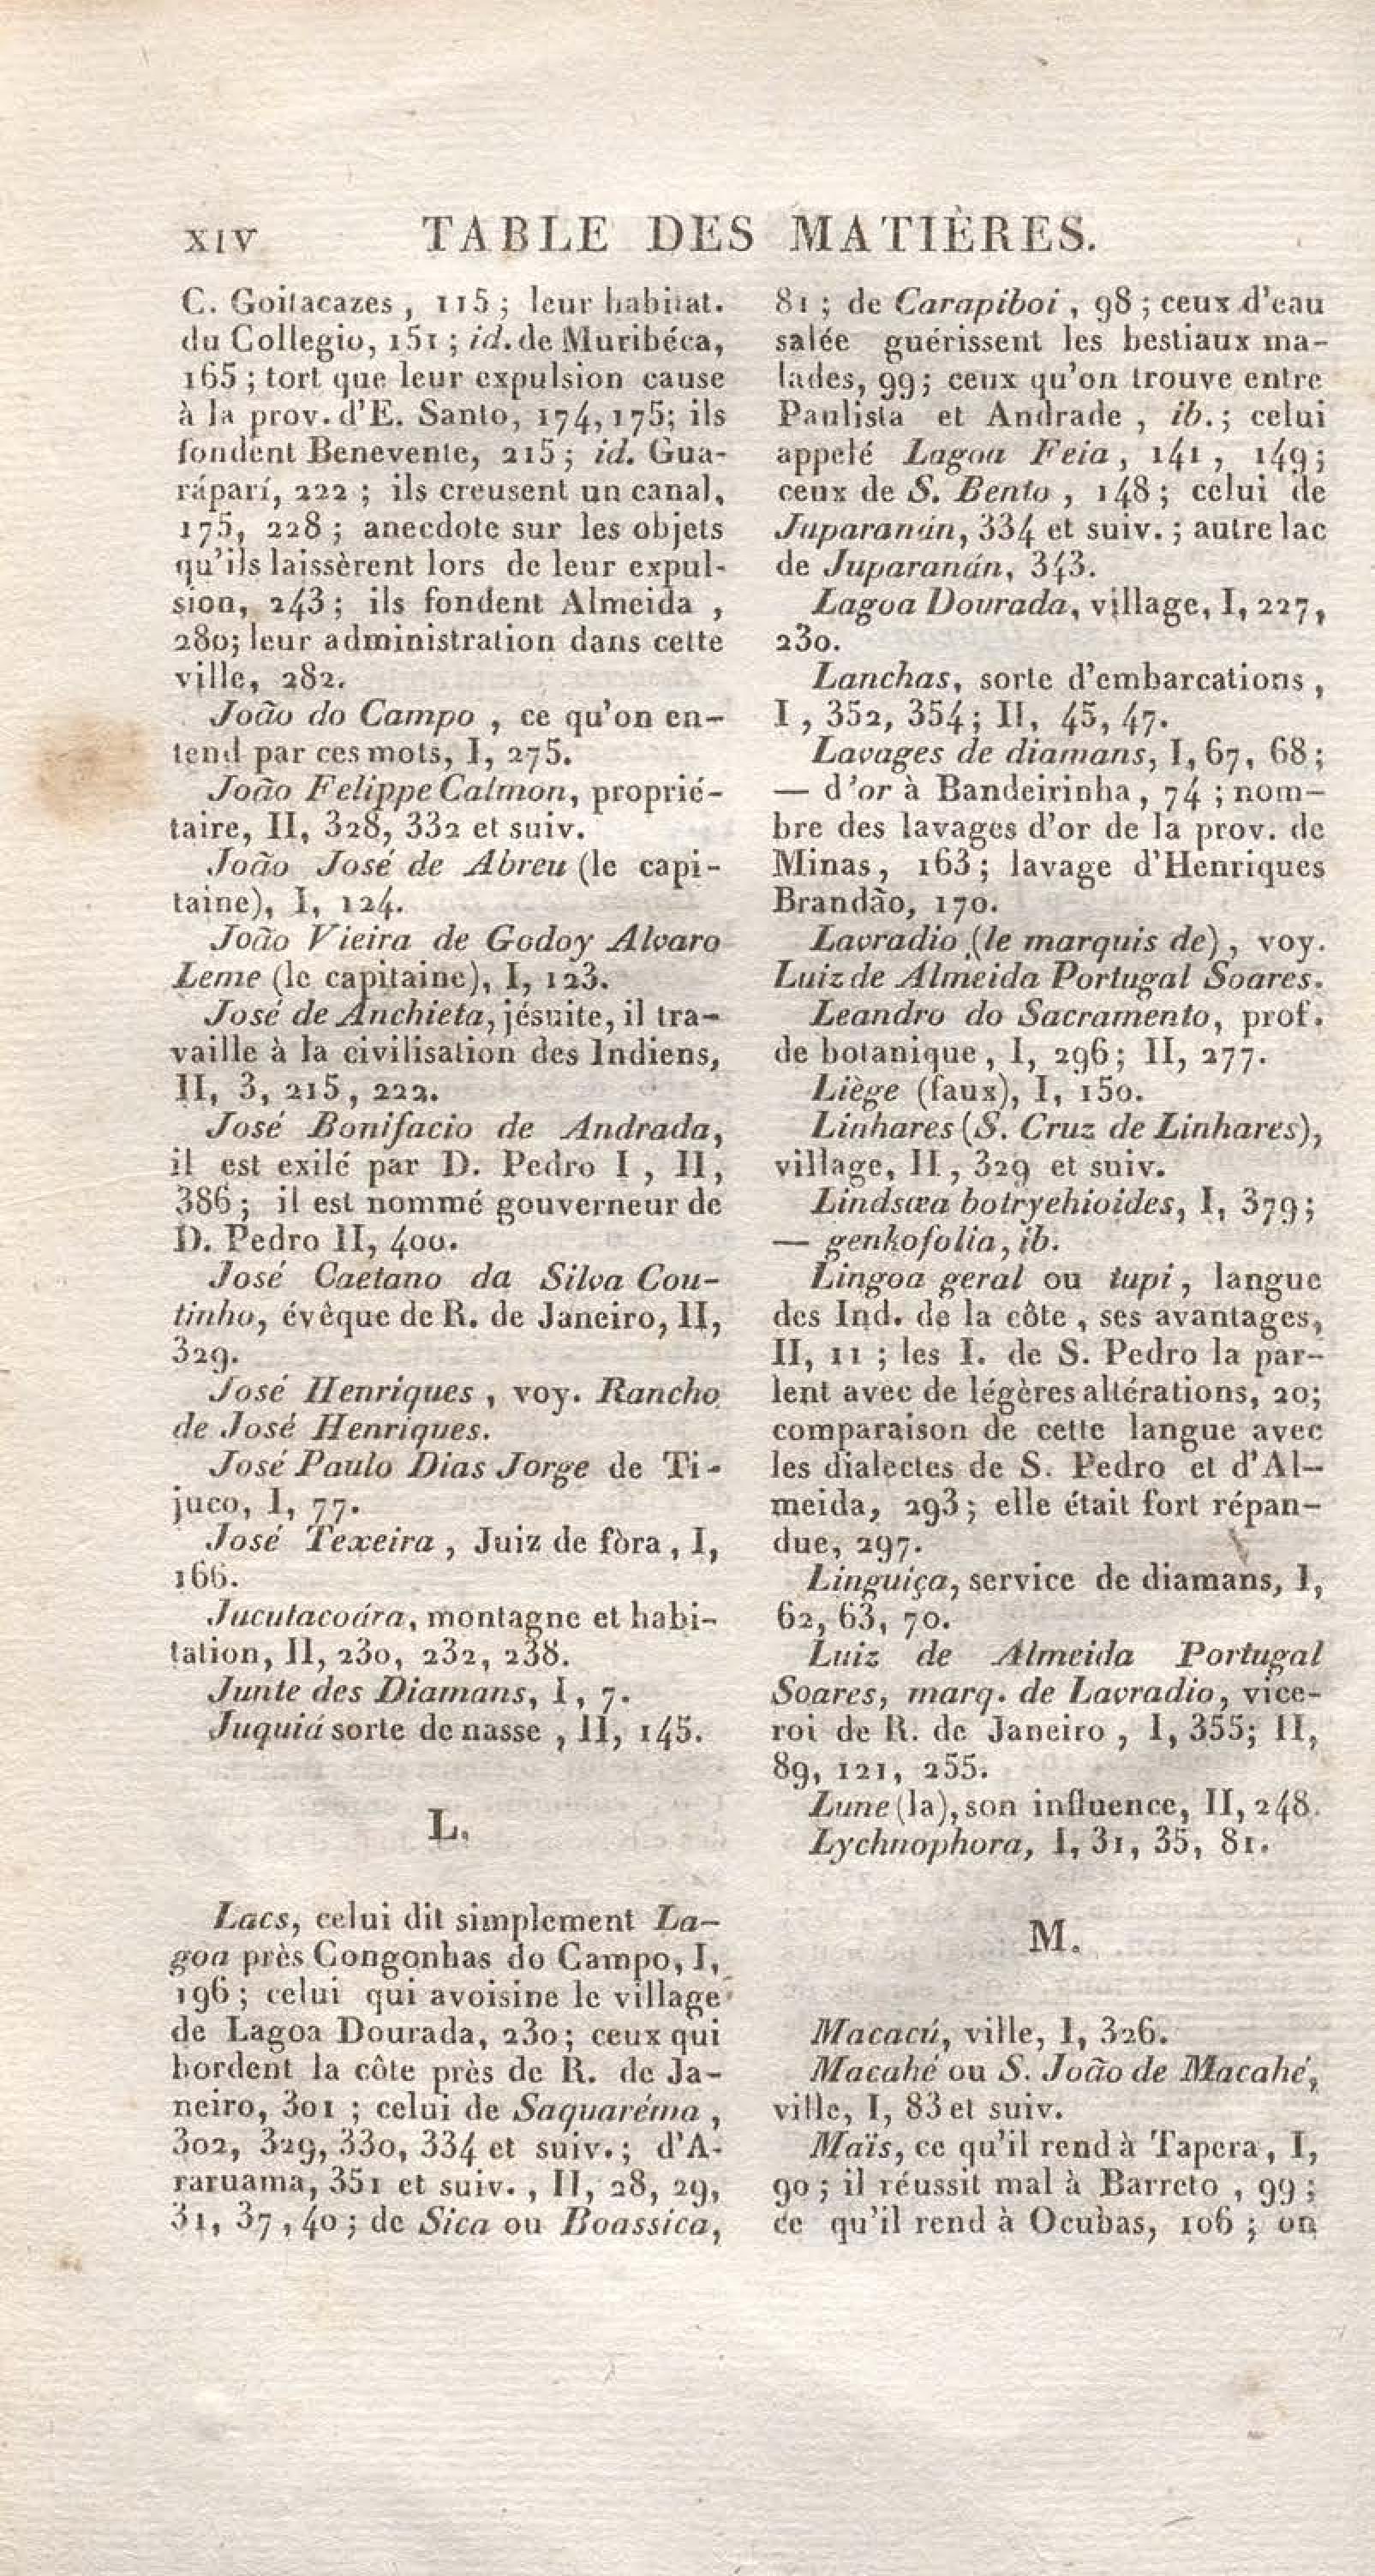 XIV TABLE DES MATIÈRES.
C. Goitacazes, 115; leur habitat.
du Collegio, 151; id. de Muribéca,
165; tort que leur expulsion cause
à la prov. d'E. Santo, 174, 175; ils
fondent Benevente, 215; id. Gua-
ráparí, 222; ils creusent un canal,
175, 228; anecdote sur les objets
qu'ils laissèrent lors de leur expul-
sion, 243; ils fondent Almeida,
280; leur administration dans cette
ville, 282.
João do Campo, ce qu'on en-
tend par ces mots, I, 275.
João Felippe Calmon, proprié-
taire, II, 328, 332 et suiv.
João José de Abreu (le capi-
taine), I, 124.
João Vieira de Godoy Alvaro
Leme (le capitaine), I, 123.
José de Anchieta, jésuite, il tra-
vaille à la civilisation des Indiens,
II, 3, 215, 222.
José Bonifacio de Andrada,
il est exilé par D. Pedro I, II,
386; il est nommé gouverneur de
D. Pedro II, 400.
José Caetano da Silva Cou-
tinho, évêque de R. de Janeiro, II,
329.
José Henriques, voy. Rancho
de José Henriques.
José Paulo Dias Jorge de Ti-
juco, I, 77.
José Texeira, Juiz de fòra, I,
166.
Jucutacoára, montagne et habi-
tation, II, 230, 232, 238.
Junte des Diamans, I, 7.
Juquiá sorte de nasse, II, 145.
L.
Lacs, celui dit simplement La-
goa près Congonhas do Campo, I,
196; celui qui avoisine le village
de Lagoa Dourada, 230; ceux qui
bordent la côte près de R. de Ja-
neiro, 301; celui de Saquaréma,
302, 329, 330, 334 et suiv.; d'A-
raruama, 351 et suiv., II, 28, 29,
31, 37, 40; de Sica ou Boassica,
81; de Carapiboi, 98; ceux d'eau
salée guérissent les bestiaux ma-
lades, 99; ceux qu'on trouve entre
Paulista et Andrade, ib.; celui
appelé Lagoa Feia, 141, 149;
ceux de S. Bento, 148; celui de
Juparanán, 334 et suiv.; autre lac
de Juparanán, 343.
Lagoa Dourada, village, I, 227,
230.
Lanchas, sorte d'embarcations,
I, 352, 354; II, 45, 47.
Lavages de diamans, I, 67, 68;
— d'or à Bandeirinha, 74; nom-
bre des lavages d'or de la prov. de
Minas, 163; lavage d'Henriques
Brandão, 170.
Lavradio (le marquis de), voy.
Luiz de Almeida Portugal Soares.
Leandro do Sacramento, prof.
de botanique, I, 296; II, 277.
Liège (faux), I, 150.
Linhares (S. Cruz de Linhares),
village, II, 329 et suiv.
Lindsæa botryehioides, I, 379;
— genkofolia, ib.
Lingoa geral ou tupi, langue
des Ind. de la côte, ses avantages,
II, 11; les I. de S. Pedro la par-
lent avec de légères altérations, 20;
comparaison de cette langue avec
les dialectes de S. Pedro et d'Al-
meida, 293; elle était fort répan-
due, 297.
Linguiça, service de diamans, I,
62, 63, 70.
Luiz de Almeida Portugal
Soares, marq. de Lavradio, vice-
roi de R. de Janeiro, I, 355; II,
89, 121, 255.
Lune (la), son influence, II, 248.
Lychnophora, I, 31, 35, 81.
M.
Macacú, ville, I, 326.
Macahé ou S. João de Macahé,
ville, I, 83 et suiv.
Maïs, ce qu'il rend à Tapera, I,
90; il réussit mal à Barreto, 99;
ce qu'il rend à Ocubas, 106; on